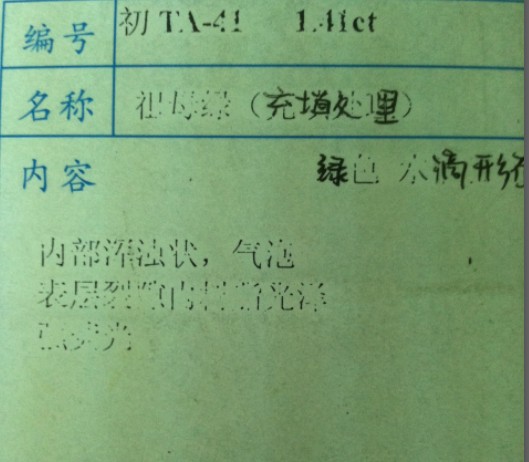 编号 初 TA-41 1.41ct
名称 祖母绿（充填处理）
内容 绿色 水滴形
内部浑浊状，气泡
表层裂隙内树脂光泽
强荧光